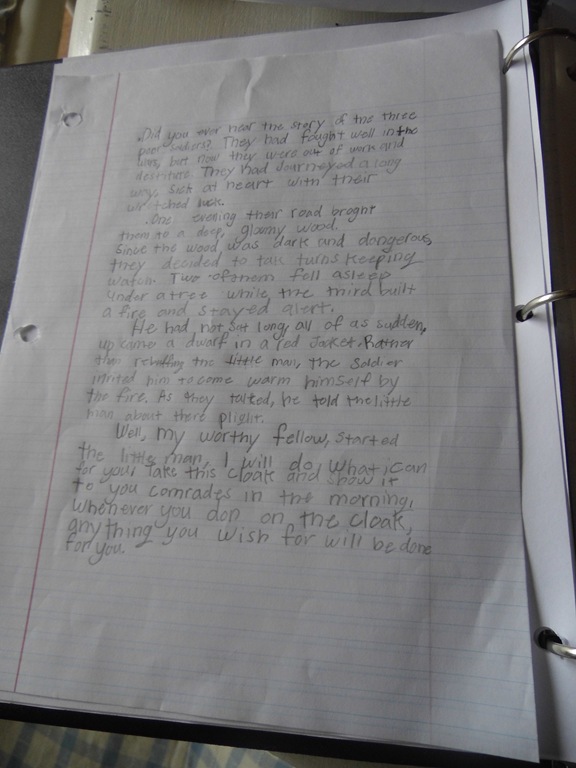 Did you ever hear the story of the three
poor soldiers? They had fought well in the
wars, but now they were out of work and
destitute. They had Journeyed a long
way, sick at heart with their
wretched luck.
One evening their road broght
them to a deep, gloamy wood.
Since the wood was dark and dangerous,
they decided to tak turns keeping
watch. Two of them fell asleep
under a tree while the third built
a fire and stayed alert.
He had not sat long, all of as sudden,
up came a dwarf in a red Jacket. Rather
than the little man, the Soldier
invited him to come warm himself by
the fire. As they talked, he told the little
man about there plight.
Well, my worthy fellow, started
the little man, I will do what i can
for you. Take this cloak and show it
to you comrades in the morning,
Whenever you don on the cloak,
anything you wish for will be done
for you.